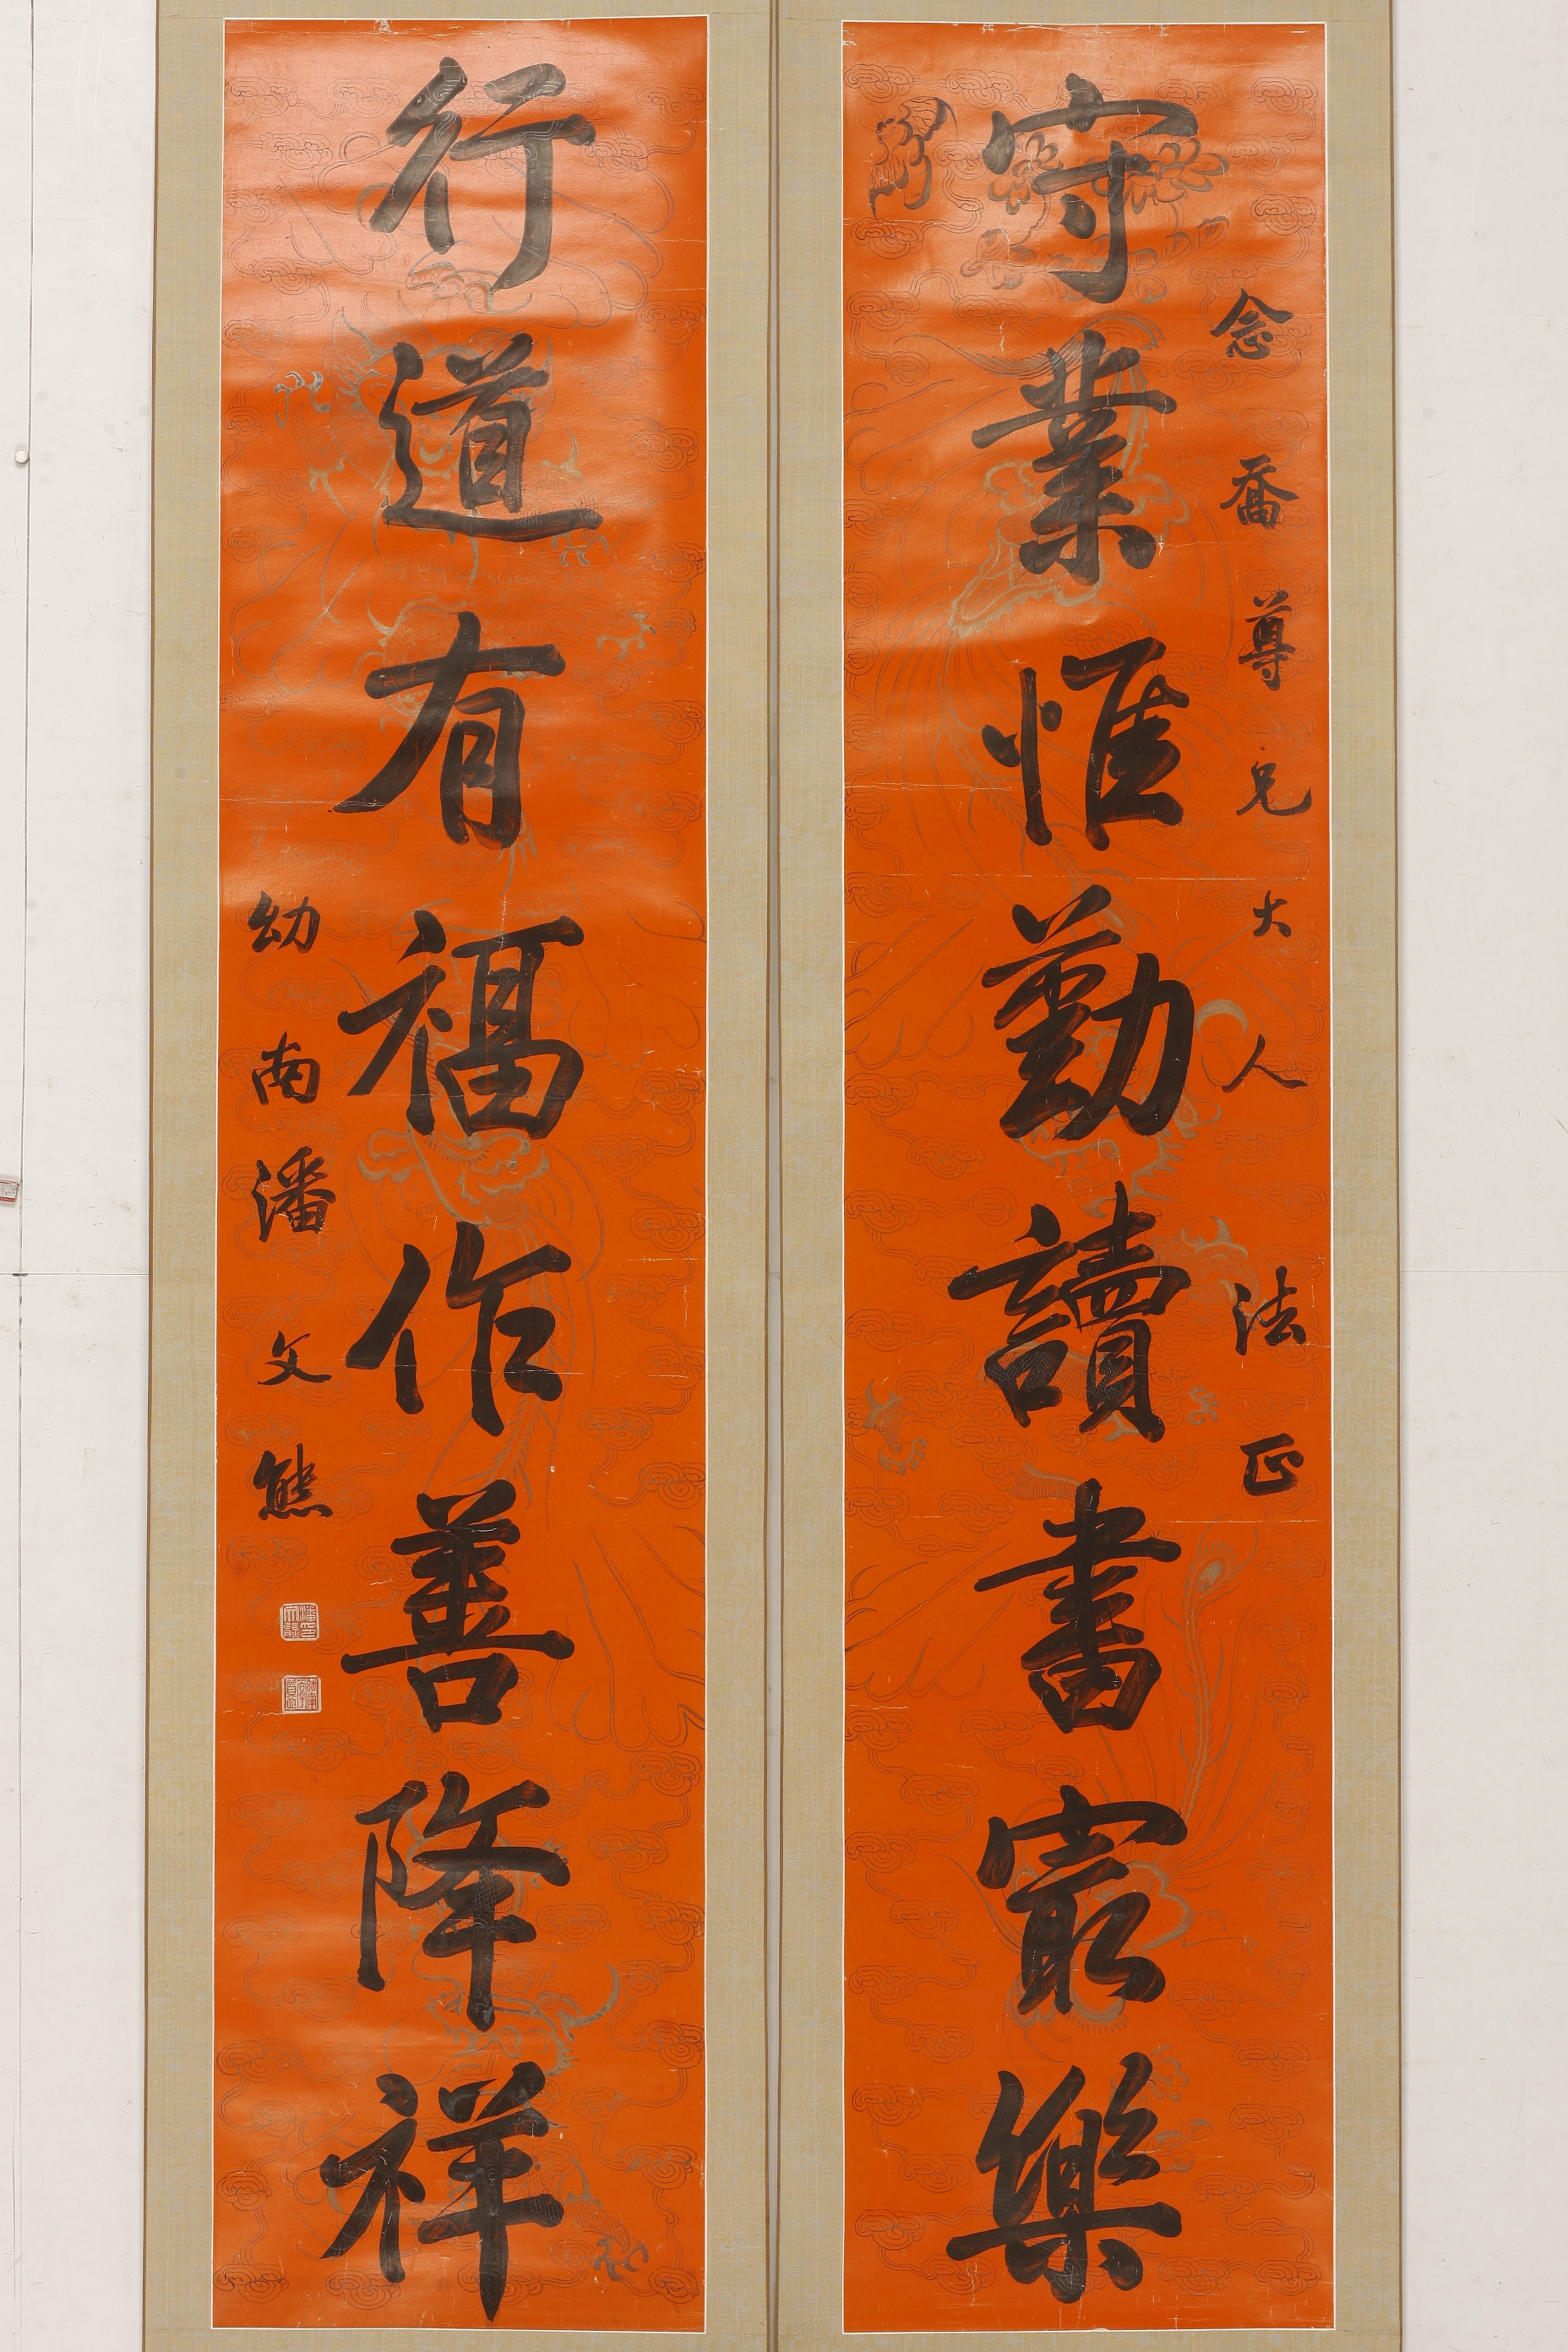 念喬尊兄大人 法正
守業惟勤讀書寂樂
行道有福作善降祥
幼南潘文熊